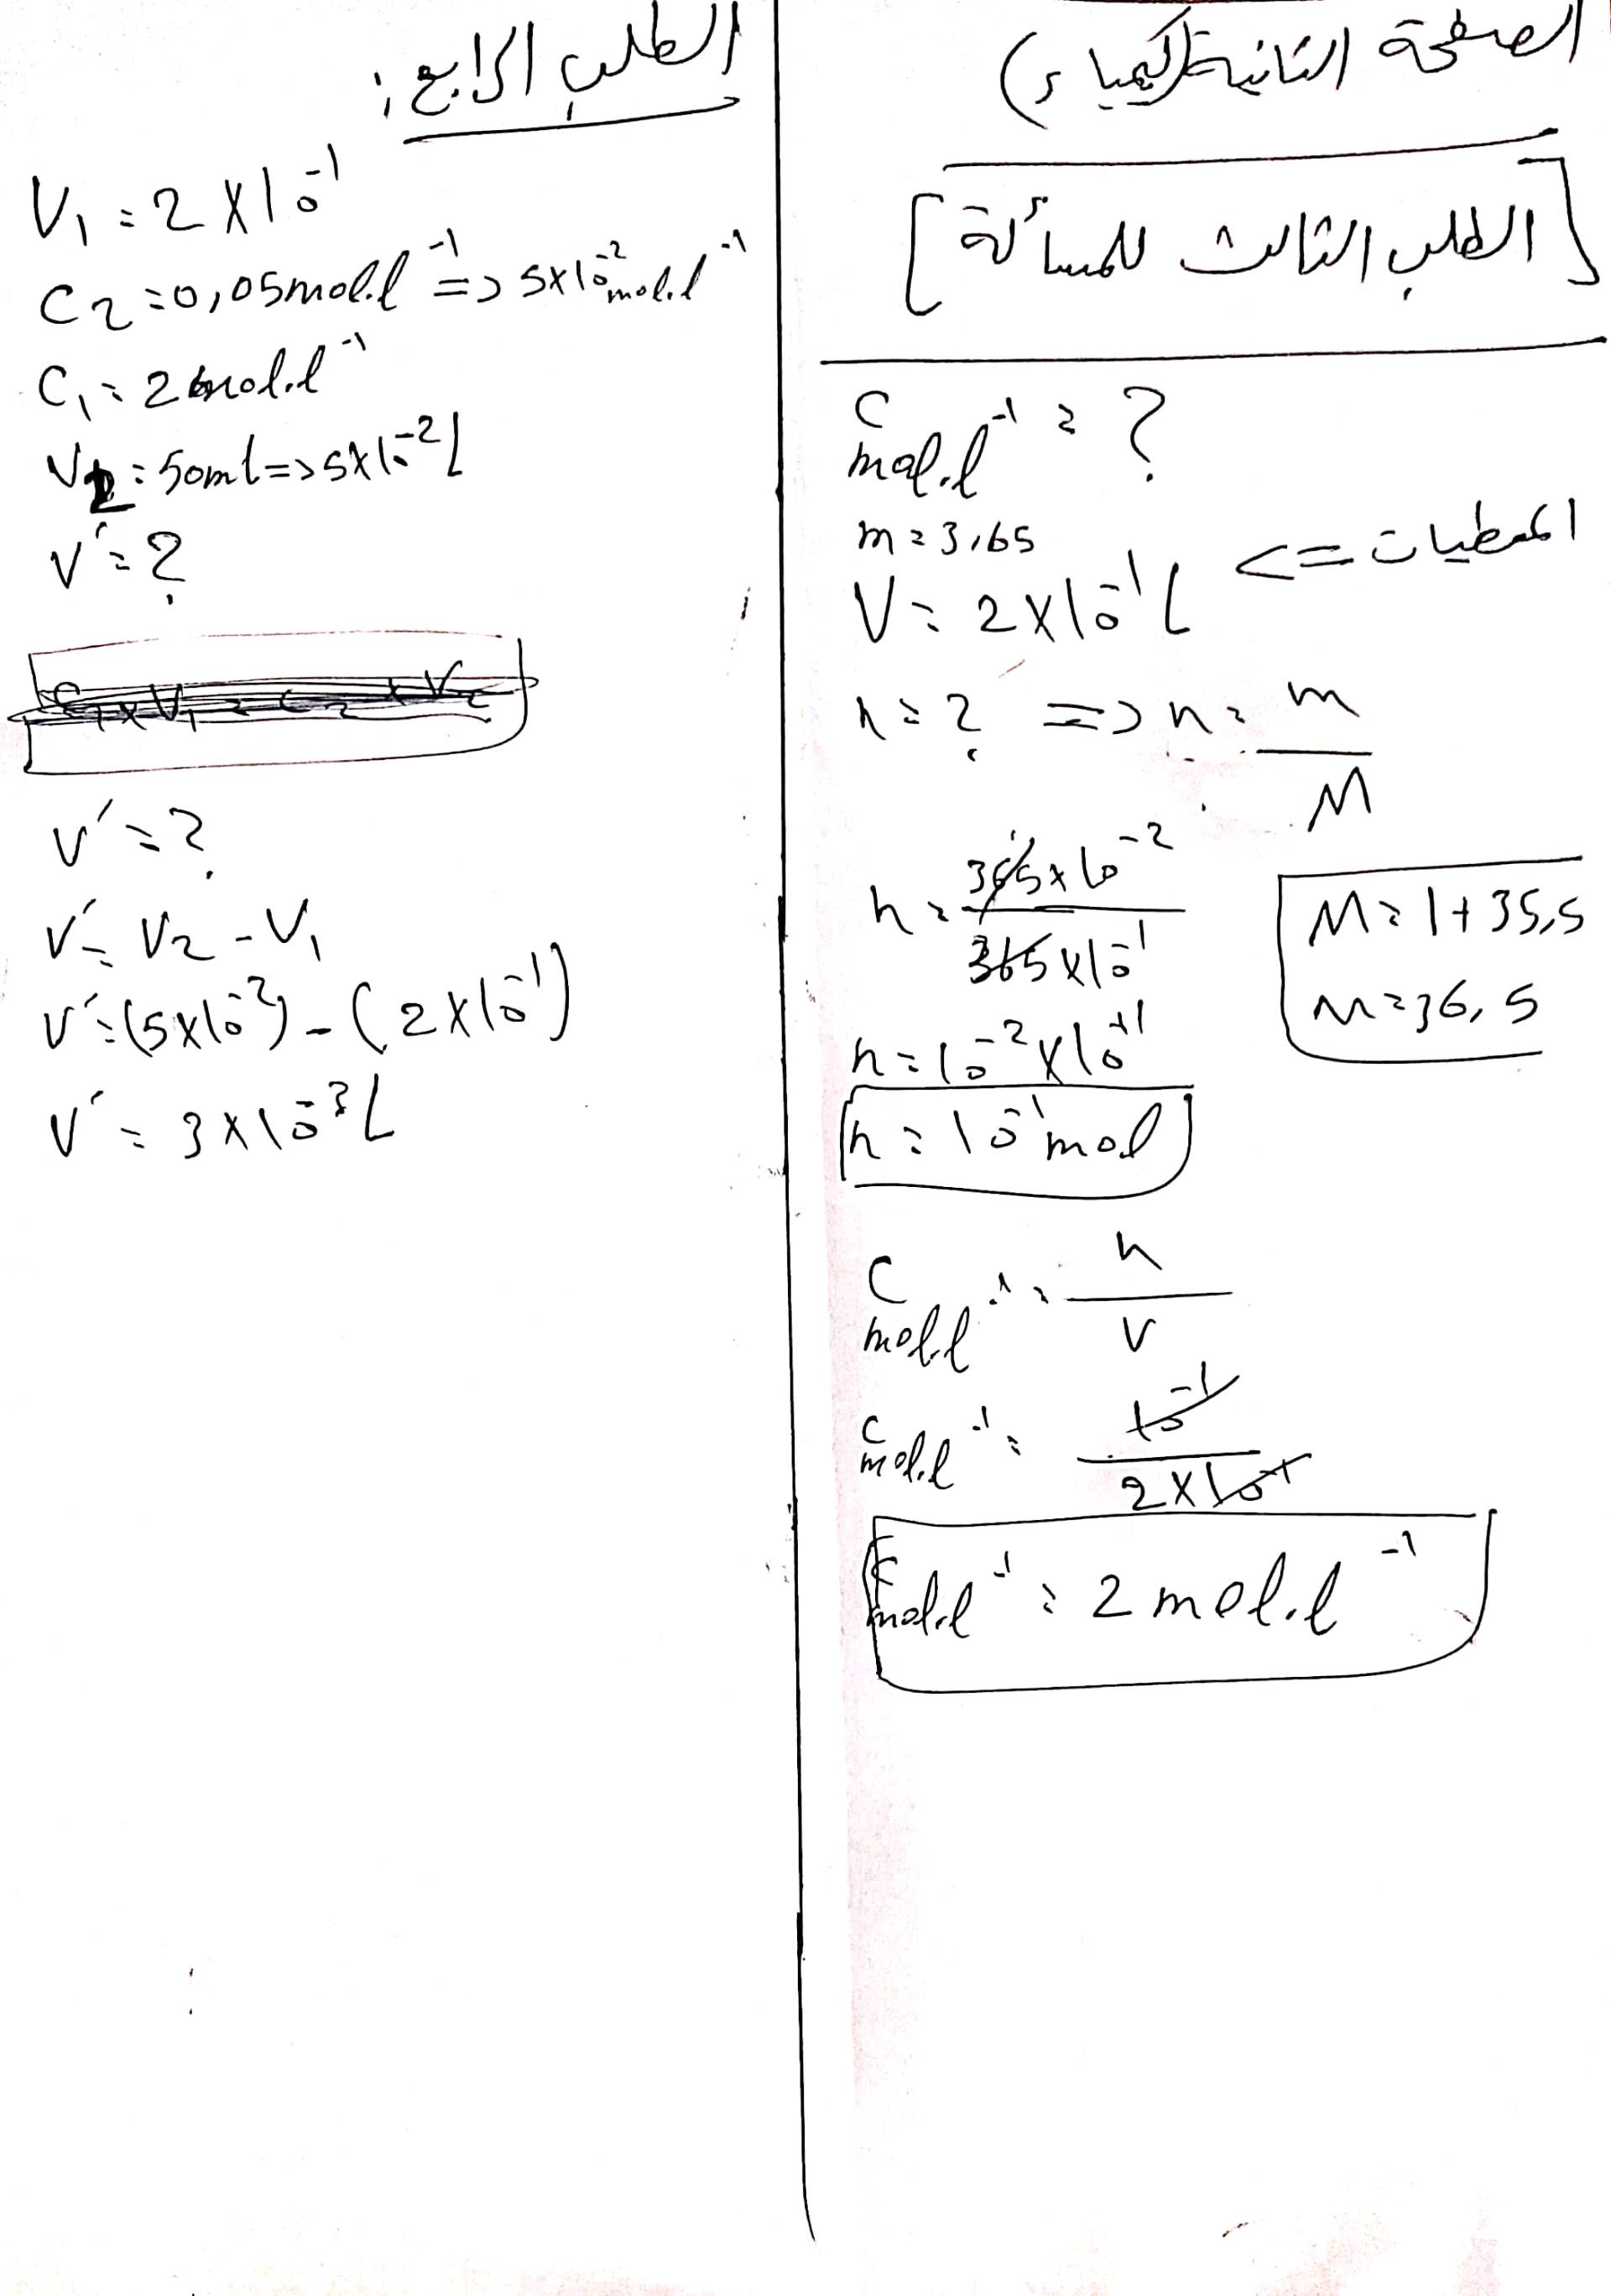 الصفحة الثانية (كيمياء)
[الطلب الثالث للمسألة]
C mol.l⁻¹ = ?
m = 3,65
المعطيات <=
V = 2×10⁻¹ L
n = ? => n = m / M
n = 365×10⁻² / 365×10⁻¹
M = 1+35,5
M = 36,5
n = 10⁻² × 10⁺¹
n = 10⁻¹ mol
C mol.l⁻¹ = n / V
C mol.l⁻¹ = 10⁻¹ / 2×10⁻¹
C mol.l⁻¹ = 2 mol.l⁻¹
الطلب الرابع:
V₁ = 2×10⁻¹
C₂ = 0,05 mol.l⁻¹ => 5×10⁻² mol.l⁻¹
C₁ = 2 mol.l⁻¹
V₂ = 50ml => 5×10⁻² L
V′ = ?
C₁ × V₁ = C₂ × V₂
V′ = ?
V′ = V₂ - V₁
V′ = (5×10⁻²) - (2×10⁻¹)
V′ = 3×10⁻³ L